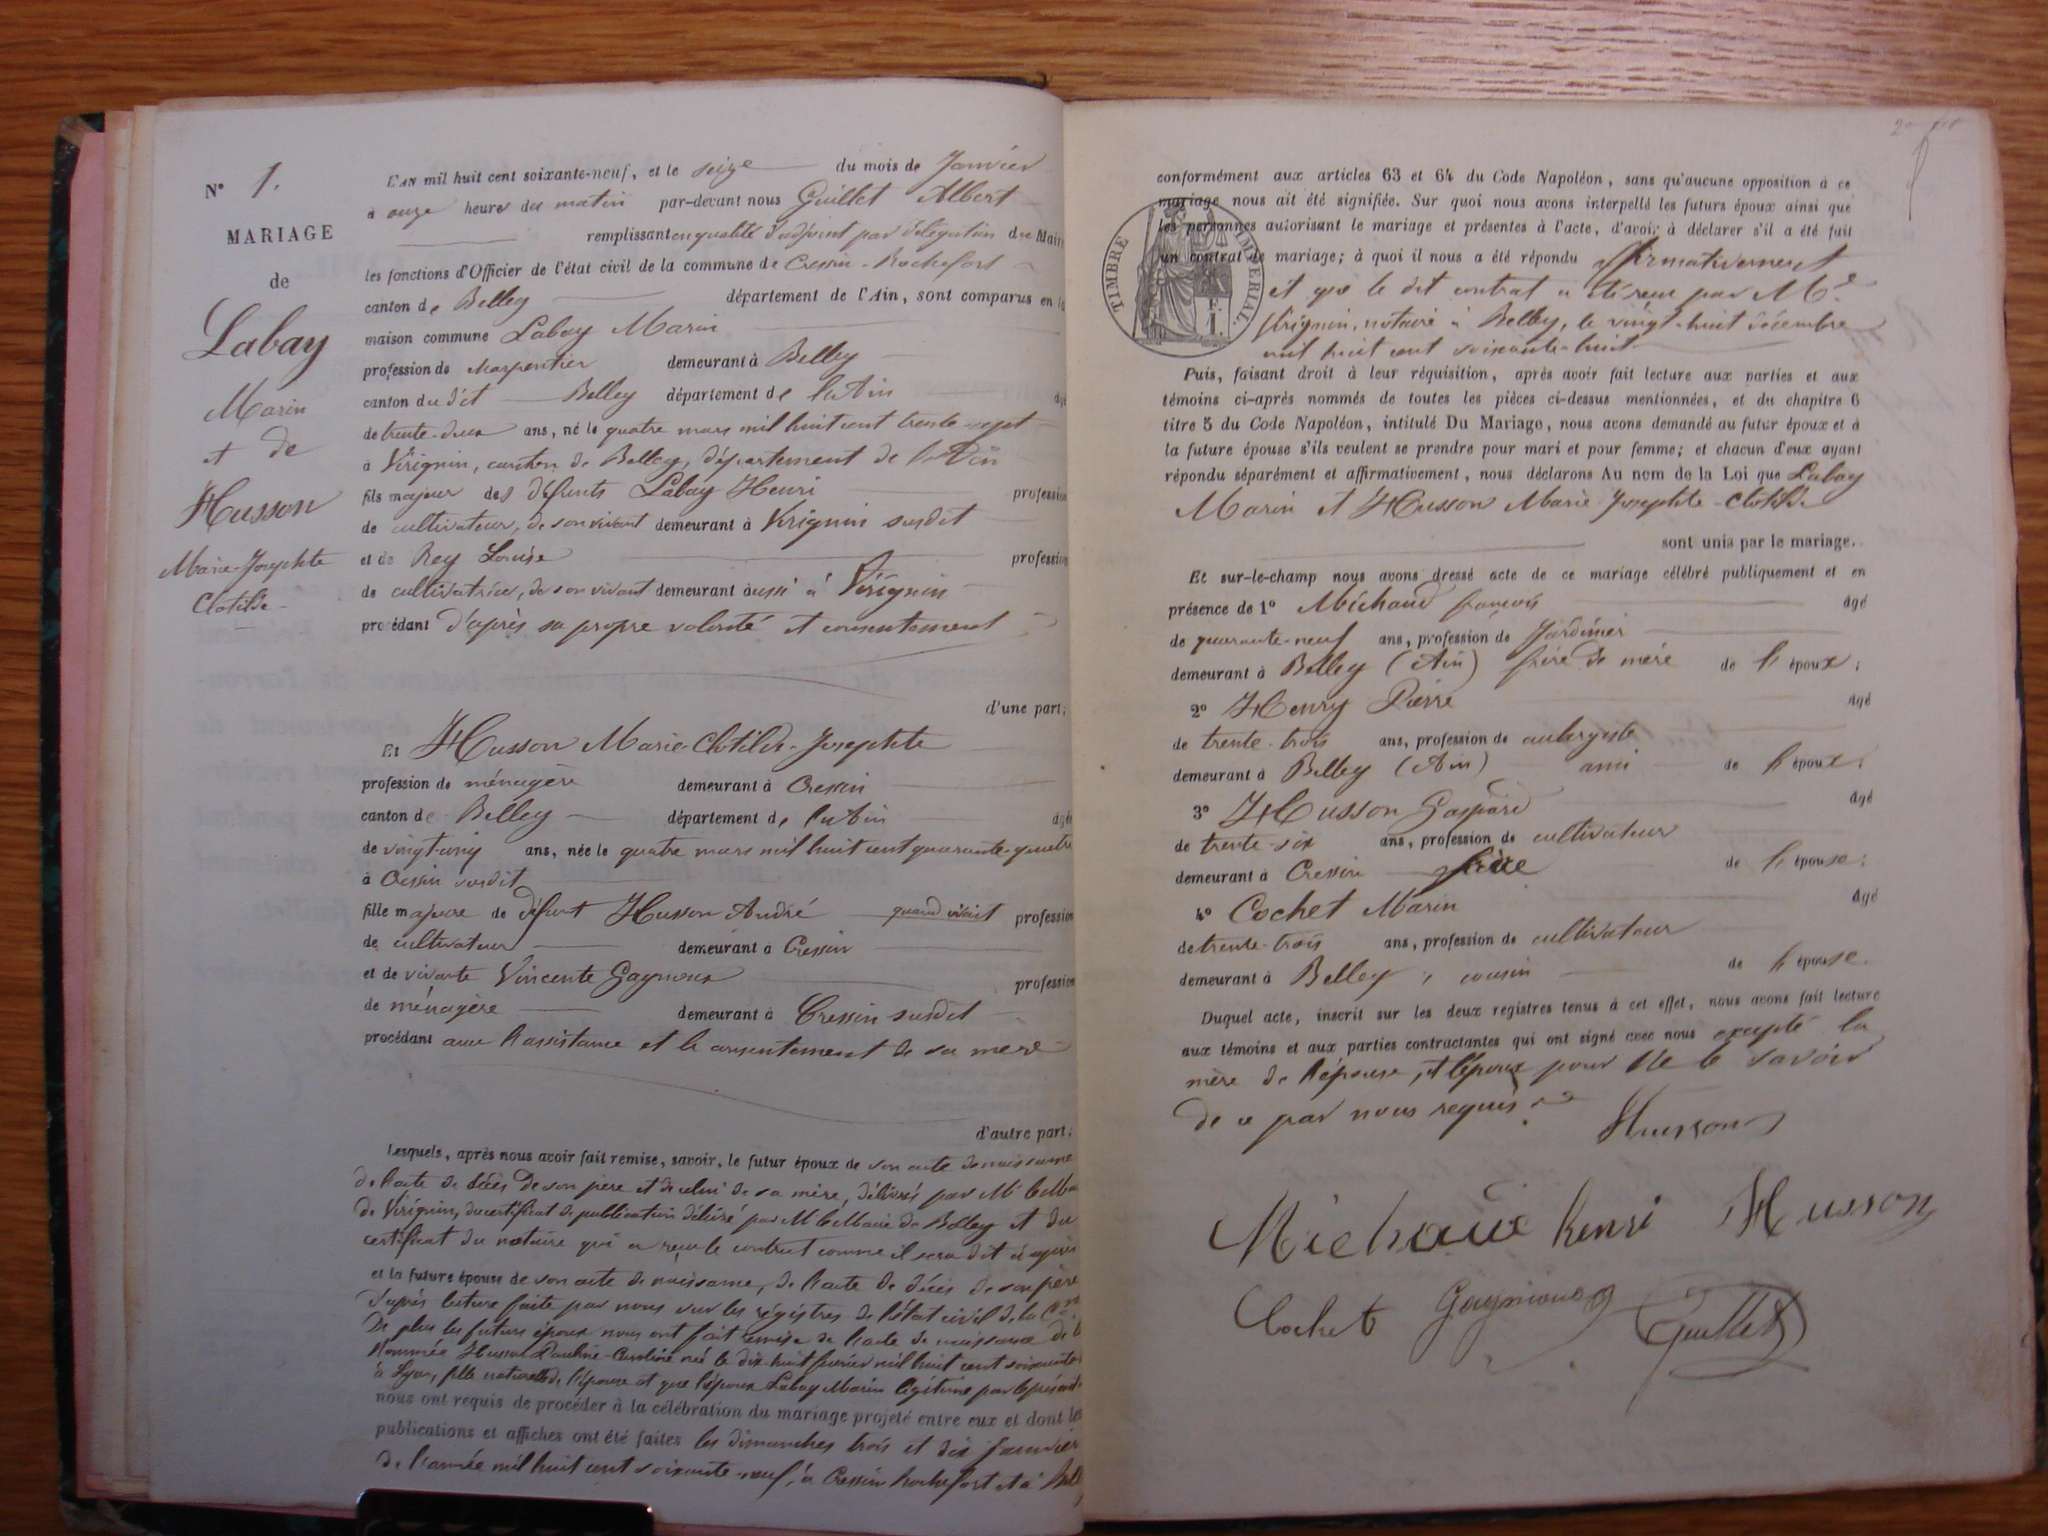 N° 1.
MARIAGE
de
Labay
Marin
et de
Husson
Marie-Josephte
Clotilde
L'AN mil huit cent soixante-neuf, et le seize du mois de Janvier
à onze heures du matin par-devant nous Guillet Albert
remplissant en qualité d'adjoint par délégation du Maire
les fonctions d'Officier de l'état civil de la commune de Cressin-Rochefort
canton de Belley département de l'Ain, sont comparus en la
maison commune Labay Marin
profession de charpentier demeurant à Belley
canton du dit Belley département de l'Ain âgé
de trente-deux ans, né le quatre mars mil huit cent trente-sept
à Virignin, canton de Belley, département de l'Ain
fils majeur des défunts Labay Henri profession
de cultivateur, de son vivant demeurant à Virignin susdit
et de Rey Louise profession
de cultivatrice, de son vivant demeurant aussi à Virignin
procédant d'après sa propre volonté et consentement
d'une part;
Et Husson Marie-Clotilde-Josephte
profession de ménagère demeurant à Cressin
canton de Belley département de l'Ain âgée
de vingt-cinq ans, née le quatre mars mil huit cent quarante-quatre
à Cressin susdit
fille majeure de défunt Husson André quand vivait profession
de cultivateur demeurant à Cressin
et de vivante Vincente Gaymoux profession
de ménagère demeurant à Cressin susdit
procédant avec l'assistance et le consentement de sa mere
d'autre part;
Lesquels, après nous avoir fait remise, savoir, le futur époux de son acte de naissance
de l'acte de décès de son père et de celui de sa mère, délivrés par Mr le Maire
de Virignin, du certificat de publication délivré par M le Maire de Belley et du
certificat du notaire qui a reçu le contrat comme il sera dit ci après
et la future épouse de son acte de naissance, de l'acte de décès de son père
d'après lecture faite par nous sur les régistres de l'état civil de la Cne
De plus les futurs époux nous ont fait remise de l'acte de naissance de la
nommée Husson Pauline-Caroline née le dix-huit fevrier mil huit cent soixante
à Lyon, fille naturelle de l'épouse et que l'époux Labay Marin légitime par le présent
nous ont requis de procéder à la célébration du mariage projeté entre eux et dont les
publications et affiches ont été faites les dimanches trois et dix janvier
de l'année mil huit cent soixante-neuf, à Cressin Rochefort et à Belley
conformément aux articles 63 et 64 du Code Napoléon, sans qu'aucune opposition à ce
mariage nous ait été signifiée. Sur quoi nous avons interpellé les futurs époux ainsi que
les personnes autorisant le mariage et présentes à l'acte, d'avoir à déclarer s'il a été fait
un contrat de mariage; à quoi il nous a été répondu affirmativement
et que le dit contrat a été reçu par Me
notaire à Belley, le vingt-huit décembre
mil huit cent soixante-huit
TIMBRE IMPERIAL.
Puis, faisant droit à leur réquisition, après avoir fait lecture aux parties et aux
témoins ci-après nommés de toutes les pièces ci-dessus mentionnées, et du chapitre 6
titre 5 du Code Napoléon, intitulé Du Mariage, nous avons demandé au futur époux et à
la future épouse s'ils veulent se prendre pour mari et pour femme; et chacun d'eux ayant
répondu séparément et affirmativement, nous déclarons Au nom de la Loi que Labay
Marin et Husson Marie-Josephte-Clotilde
sont unis par le mariage.
Et sur-le-champ nous avons dressé acte de ce mariage célébré publiquement et en
présence de 1° Michaud françois âgé
de quarante-neuf ans, profession de Jardinier
demeurant à Belley (Ain) frère de mère de l'époux;
2° Henry Pierre âgé
de trente-trois ans, profession de aubergiste
demeurant à Belley (Ain) ami de l'époux;
3° Husson Gaspard âgé
de trente-six ans, profession de cultivateur
demeurant à Cressin frère de l'épouse;
4° Cochet Marin âgé
de trente-trois ans, profession de cultivateur
demeurant à Belley, cousin de l'épouse.
Duquel acte, inscrit sur les deux registres tenus à cet effet, nous avons fait lecture
aux témoins et aux parties contractantes qui ont signé avec nous excepté la
mère de l'épouse, et l'époux pour ne le savoir
de ce par nous requis.
Husson
Michaud henri Husson
Cochet Gaymoux Guillet